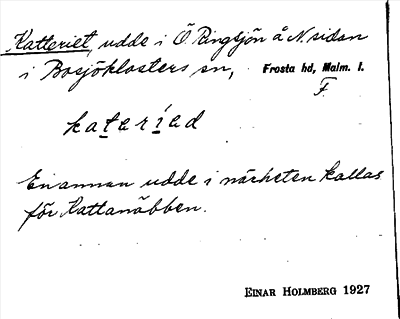 Katteriet, udde i Ö Ringsjön å N. sidan
i Bosjöklosters sn, Frosta hd, Malm. l.
F.
kateried
En annan udde i närheten kallas
för Kattanäbben.
EINAR HOLMBERG 1927